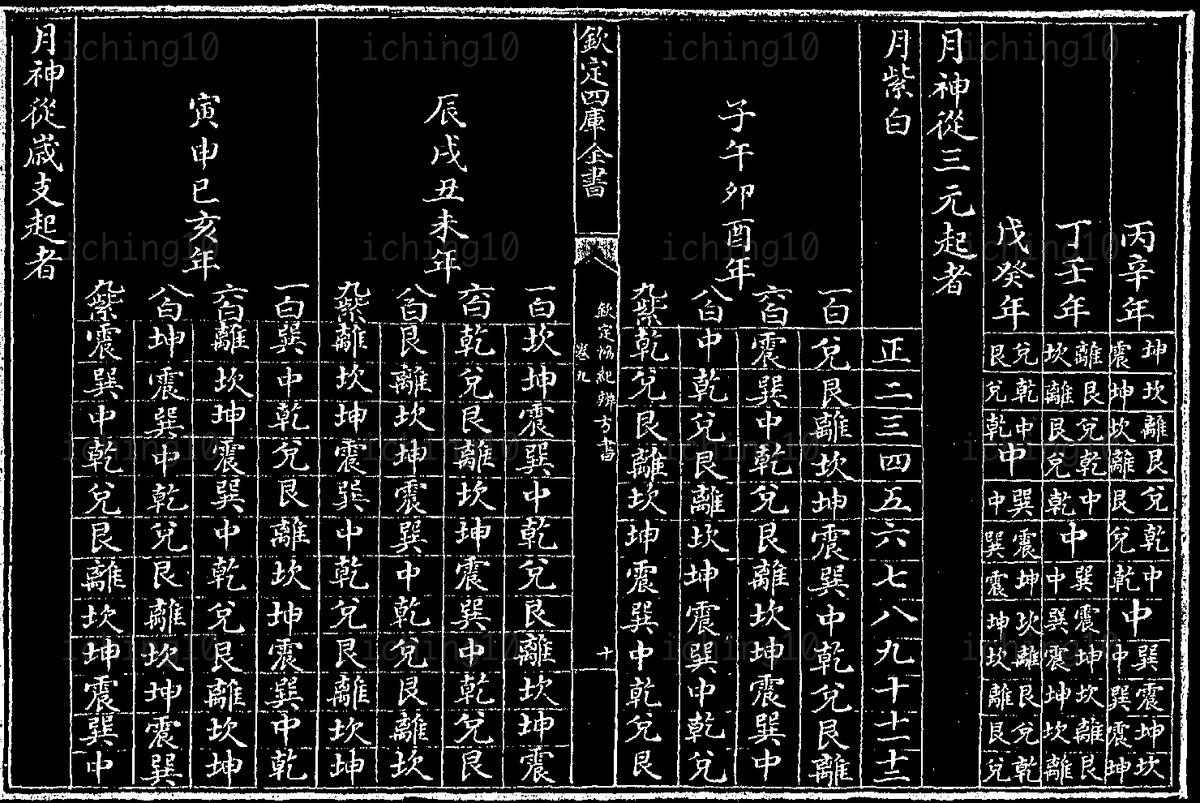 丙辛年
坤震 坎坤 離坎 艮離 兌艮 乾兌 中乾 中 巽中 震巽 坤震 坎坤
丁壬年
離坎 艮離 兌艮 乾兌 中乾 中 巽中 震巽 坤震 坎坤 離坎 艮離
戊癸年
兌艮 乾兌 中乾 中 巽中 震巽 坤震 坎坤 離坎 艮離 兌艮 乾兌
月神從三元起者
月紫白
正 二 三 四 五 六 七 八 九 十 十一 十二
子午卯酉年
一白 兌 艮 離 坎 坤 震 巽 中 乾 兌 艮 離
六白 震 巽 中 乾 兌 艮 離 坎 坤 震 巽 中
八白 中 乾 兌 艮 離 坎 坤 震 巽 中 乾 兌
九紫 乾 兌 艮 離 坎 坤 震 巽 中 乾 兌 艮
欽定四庫全書
欽定協紀辨方書
卷九
十
辰戌丑未年
一白 坎 坤 震 巽 中 乾 兌 艮 離 坎 坤 震
六白 乾 兌 艮 離 坎 坤 震 巽 中 乾 兌 艮
八白 艮 離 坎 坤 震 巽 中 乾 兌 艮 離 坎
九紫 離 坎 坤 震 巽 中 乾 兌 艮 離 坎 坤
寅申巳亥年
一白 巽 中 乾 兌 艮 離 坎 坤 震 巽 中 乾
六白 離 坎 坤 震 巽 中 乾 兌 艮 離 坎 坤
八白 坤 震 巽 中 乾 兌 艮 離 坎 坤 震 巽
九紫 震 巽 中 乾 兌 艮 離 坎 坤 震 巽 中
月神從歲支起者
iching10 iching10 iching10 iching10
iching10 iching10 iching10 iching10
iching10 iching10 iching10 iching10
iching10 iching10 iching10 iching10